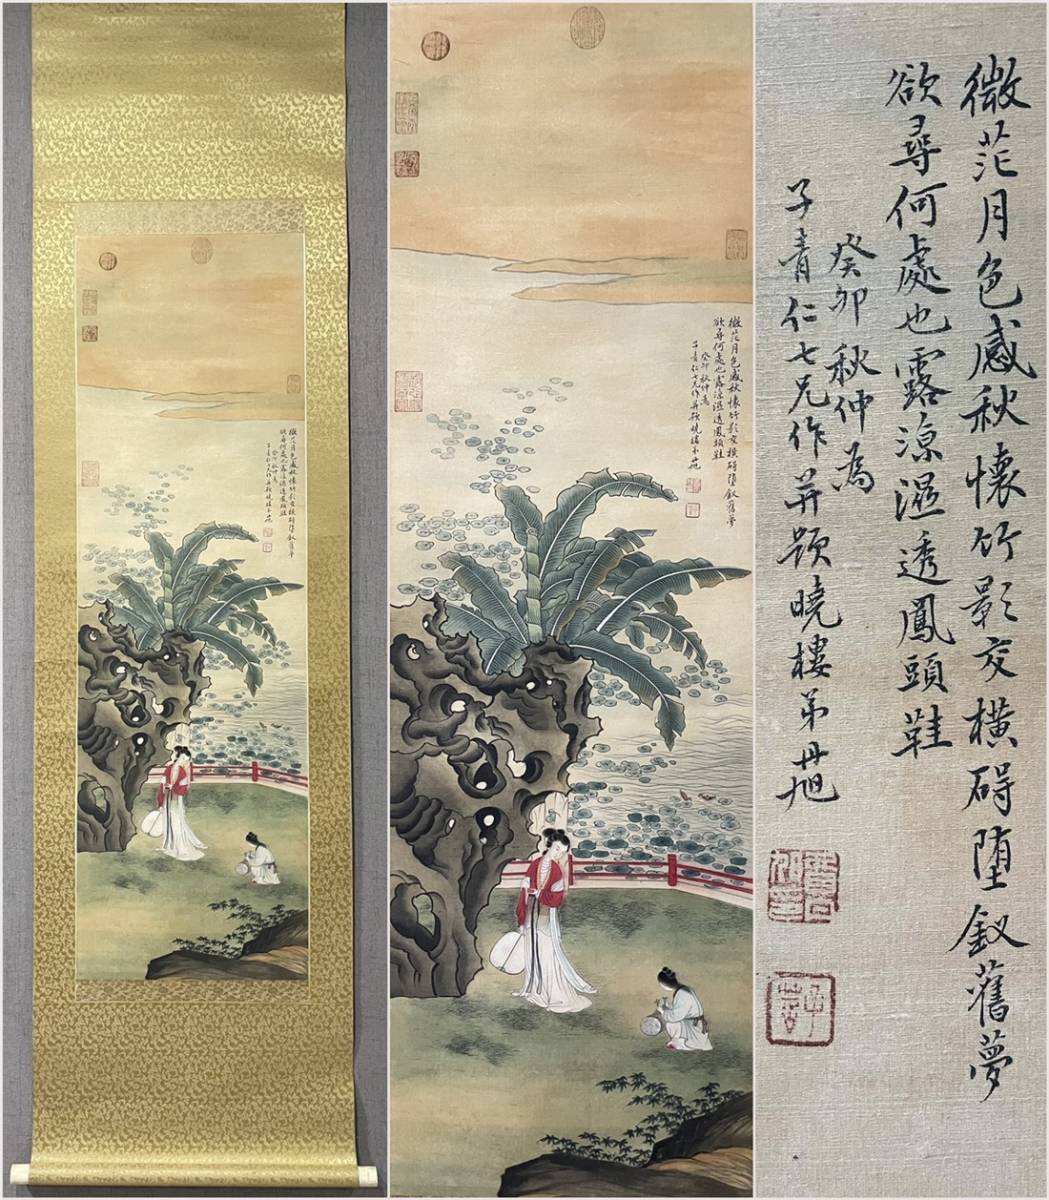 微茫月色感秋懷竹影交橫碍堕釵舊夢
欲尋何處也露涼濕透鳳頭鞋
癸卯秋仲為
子青仁七兄作并題曉樓弟丗旭